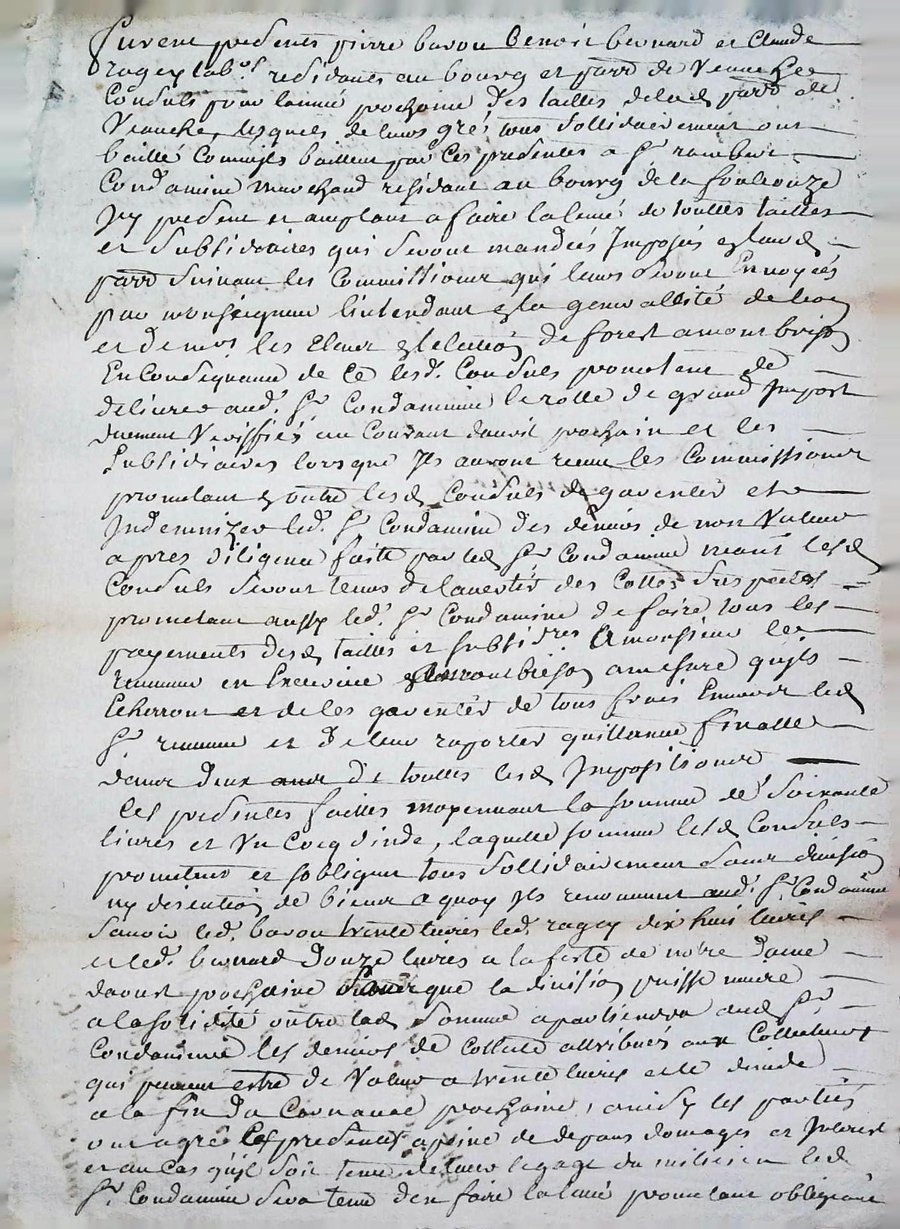 furent presents pierre bavou Benoit bernard et Claude
ragey lab.rs residants au bourg et parr de Veauche
Consuls pour lannée prochaine des tailles delad parr de
Veauche, lesquels de leurs gré tous sollidairement ont
baillé Commis baillent par Ces presentes a Sr rambert
Condamine marchand residant au bourg de la fouliouze
Icy present et acceptant a faire la levé de touttes tailles
et subsidiaires qui seront mandées Imposés en lad
parr suivant les Commissions qui leurs seront Envoyées
par monseigneur lintendant en la generallité de lion
et de mrs les Eleus en lelection de forest a montbrison
En Consequance de Ce lesd. Consuls prometent de
delivrer aud. Sr Condamine le rolle de grand Import
duement Veriffiés au Courant davril prochain et les
subsidiaires lorsque Ils auront receu les Commissions
prometant en outre lesd Consuls de garentir et
Indemnizer led. Sr Condamine des deniers de non Valeur
apres diligence faitte par led Sr Condamine neant lesd
Consuls seront tenus de lavertir des Cottes suspectes
prometant aussy led. Sr Condamine de faire tous les
payements desd tailles et subsidres A monsieur le
receveur en Exercice a montbrison a mesure quils
Echerront et de les garentir de tous frais Envers led
Sr receveur et de leur raporter quittance finalle
dans deux ans de touttes lesd Impositions
les presentes faittes moyennant la somme de soixante
livres et Un Coq dinde, laquelle somme lesd Consuls
prometent et sobligent tous sollidairement sans division
ny discution de biens a quoy Ils renoncent aud. Sr Condamine
savoir led. bavou trente livres led. ragey dix huit livres
et led. bernard douze livres a la feste de notre dame
daoust prochaine sans que la division puisse nuire
a la solidité outre lad somme apartiendra aud Sr
Condamine les deniers de Collecte attribués aux Collecteurs
qui peuvent estre de Valeur a trente livres et le dinde
a la fin du Carnaval prochaine, ainsy les parties
ont agré les presentes a peine de depans domages et Interest
et au Cas quil soit tenu de lever le gage du milicien led
Sr Condamine sera tenu den faire la levé prometant obligeant